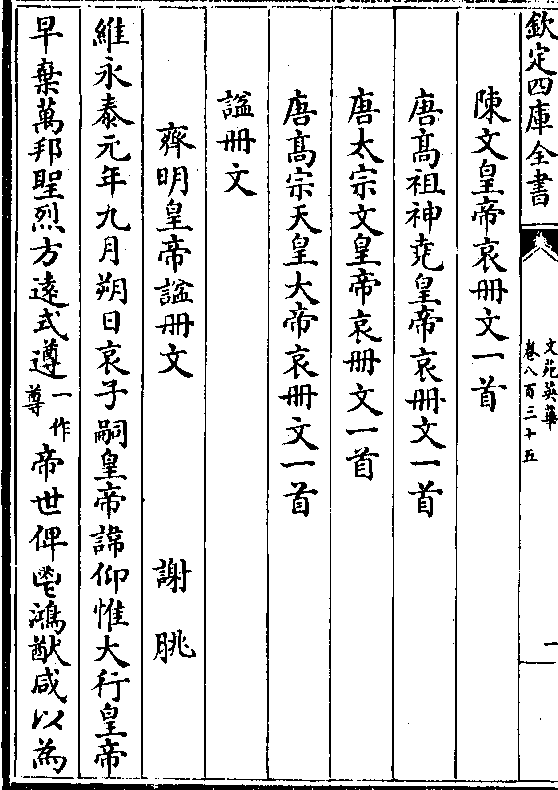 欽定四庫全書
文苑英華
卷八百三十五
一
陳文皇帝哀冊文一首
唐高祖神堯皇帝哀冊文一首
唐太宗文皇帝哀冊文一首
唐髙宗天皇大帝哀冊文一首
諡冊文
齊明皇帝諡冊文 謝朓
維永泰元年九月朔日哀子嗣皇帝諱仰惟大行皇帝
早棄萬邦聖烈方逺式遵一作尊帝世俾鬯鴻猷咸以為